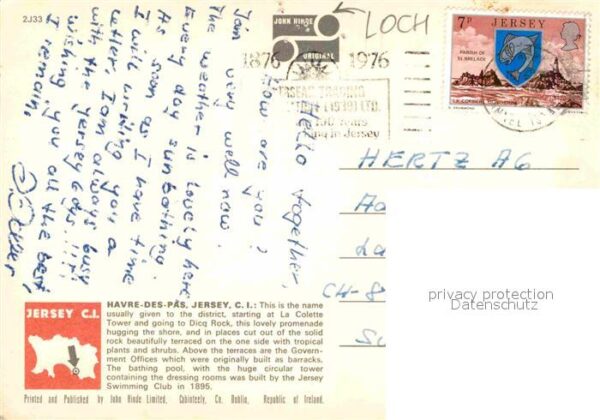 2J33
JOHN HINDE
ORIGINAL
LOCH
1876 1976
TRADING
(1939) LTD.
100 Years
in Jersey
7p JERSEY
PARISH OF
ST. BRELADE
Hello together,
How are you?
I'am very well now.
The weather is lovely here
Every day sunbathing.
As soon as I have time
I will writing you a
letter, I am always busy
with the Jersey boys!!!!
wishing you all the best,
I remain,
HERTZ AG
CH-8
privacy protection
Datenschutz
JERSEY C.I.
HAVRE-DES-PAS, JERSEY, C. I.: This is the name
usually given to the district, starting at La Colette
Tower and going to Dicq Rock, this lovely promenade
hugging the shore, and in places cut out of the solid
rock beautifully terraced on the one side with tropical
plants and shrubs. Above the terraces are the Govern-
ment Offices which were originally built as barracks.
The bathing pool, with the huge circular tower
containing the dressing rooms was built by the Jersey
Swimming Club in 1895.
Printed and Published by John Hinde Limited, Cabinteely, Co. Dublin, Republic of Ireland.